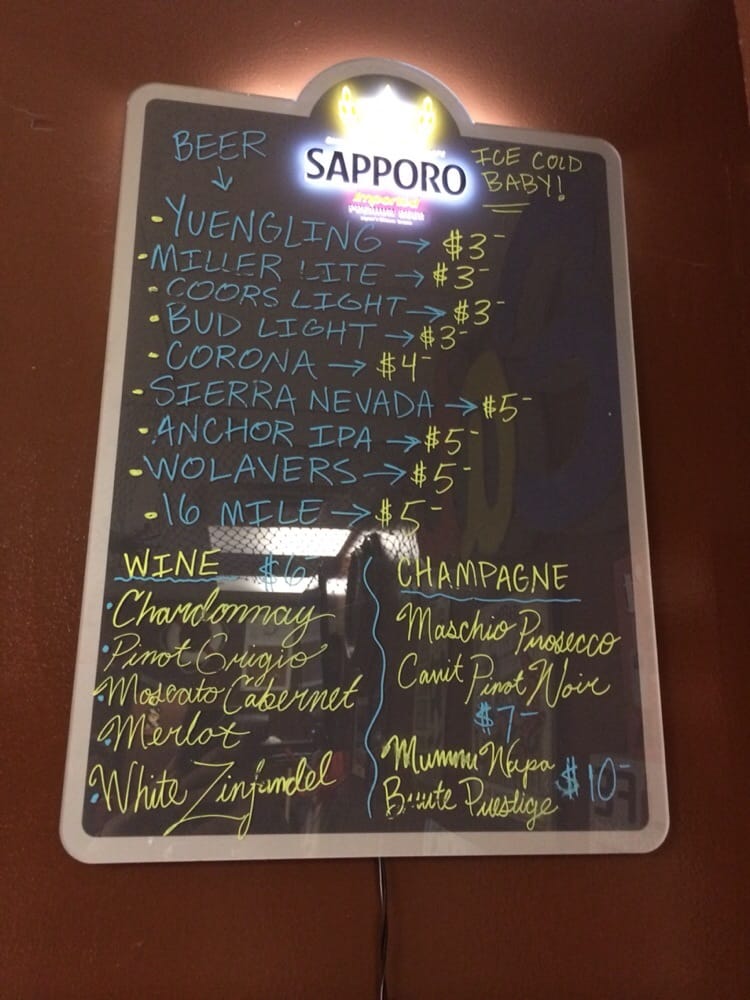 BEER
SAPPORO
Imported
PREMIUM BEER
ICE COLD
BABY!
YUENGLING → $3-
MILLER LITE → $3-
COORS LIGHT → $3-
BUD LIGHT → $3-
CORONA → $4-
SIERRA NEVADA → $5-
ANCHOR IPA → $5-
WOLAVERS → $5-
16 MILE → $5-
WINE $6-
Chardonnay
Pinot Grigio
Moscato Cabernet
Merlot
White Zinfandel
CHAMPAGNE
Maschio Prosecco
Cavit Pinot Noir
$7-
Mumm Napa
Brute Prestige $10-